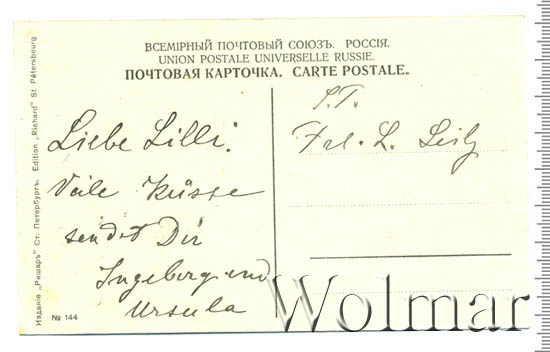 ВСЕМІРНЫЙ ПОЧТОВЫЙ СОЮЗЪ. РОССІЯ.
UNION POSTALE UNIVERSELLE RUSSIE.
ПОЧТОВАЯ КАРТОЧКА. CARTE POSTALE.
S.T.
Frl. L.
Liebe Lilli.
Viele Küsse
sendet Dir
Ingeborg und
Ursula
Изданіе „Ришаръ" Ст. Петербургъ. Edition „Richard" St. Pétersbourg
№ 144
Wolmar